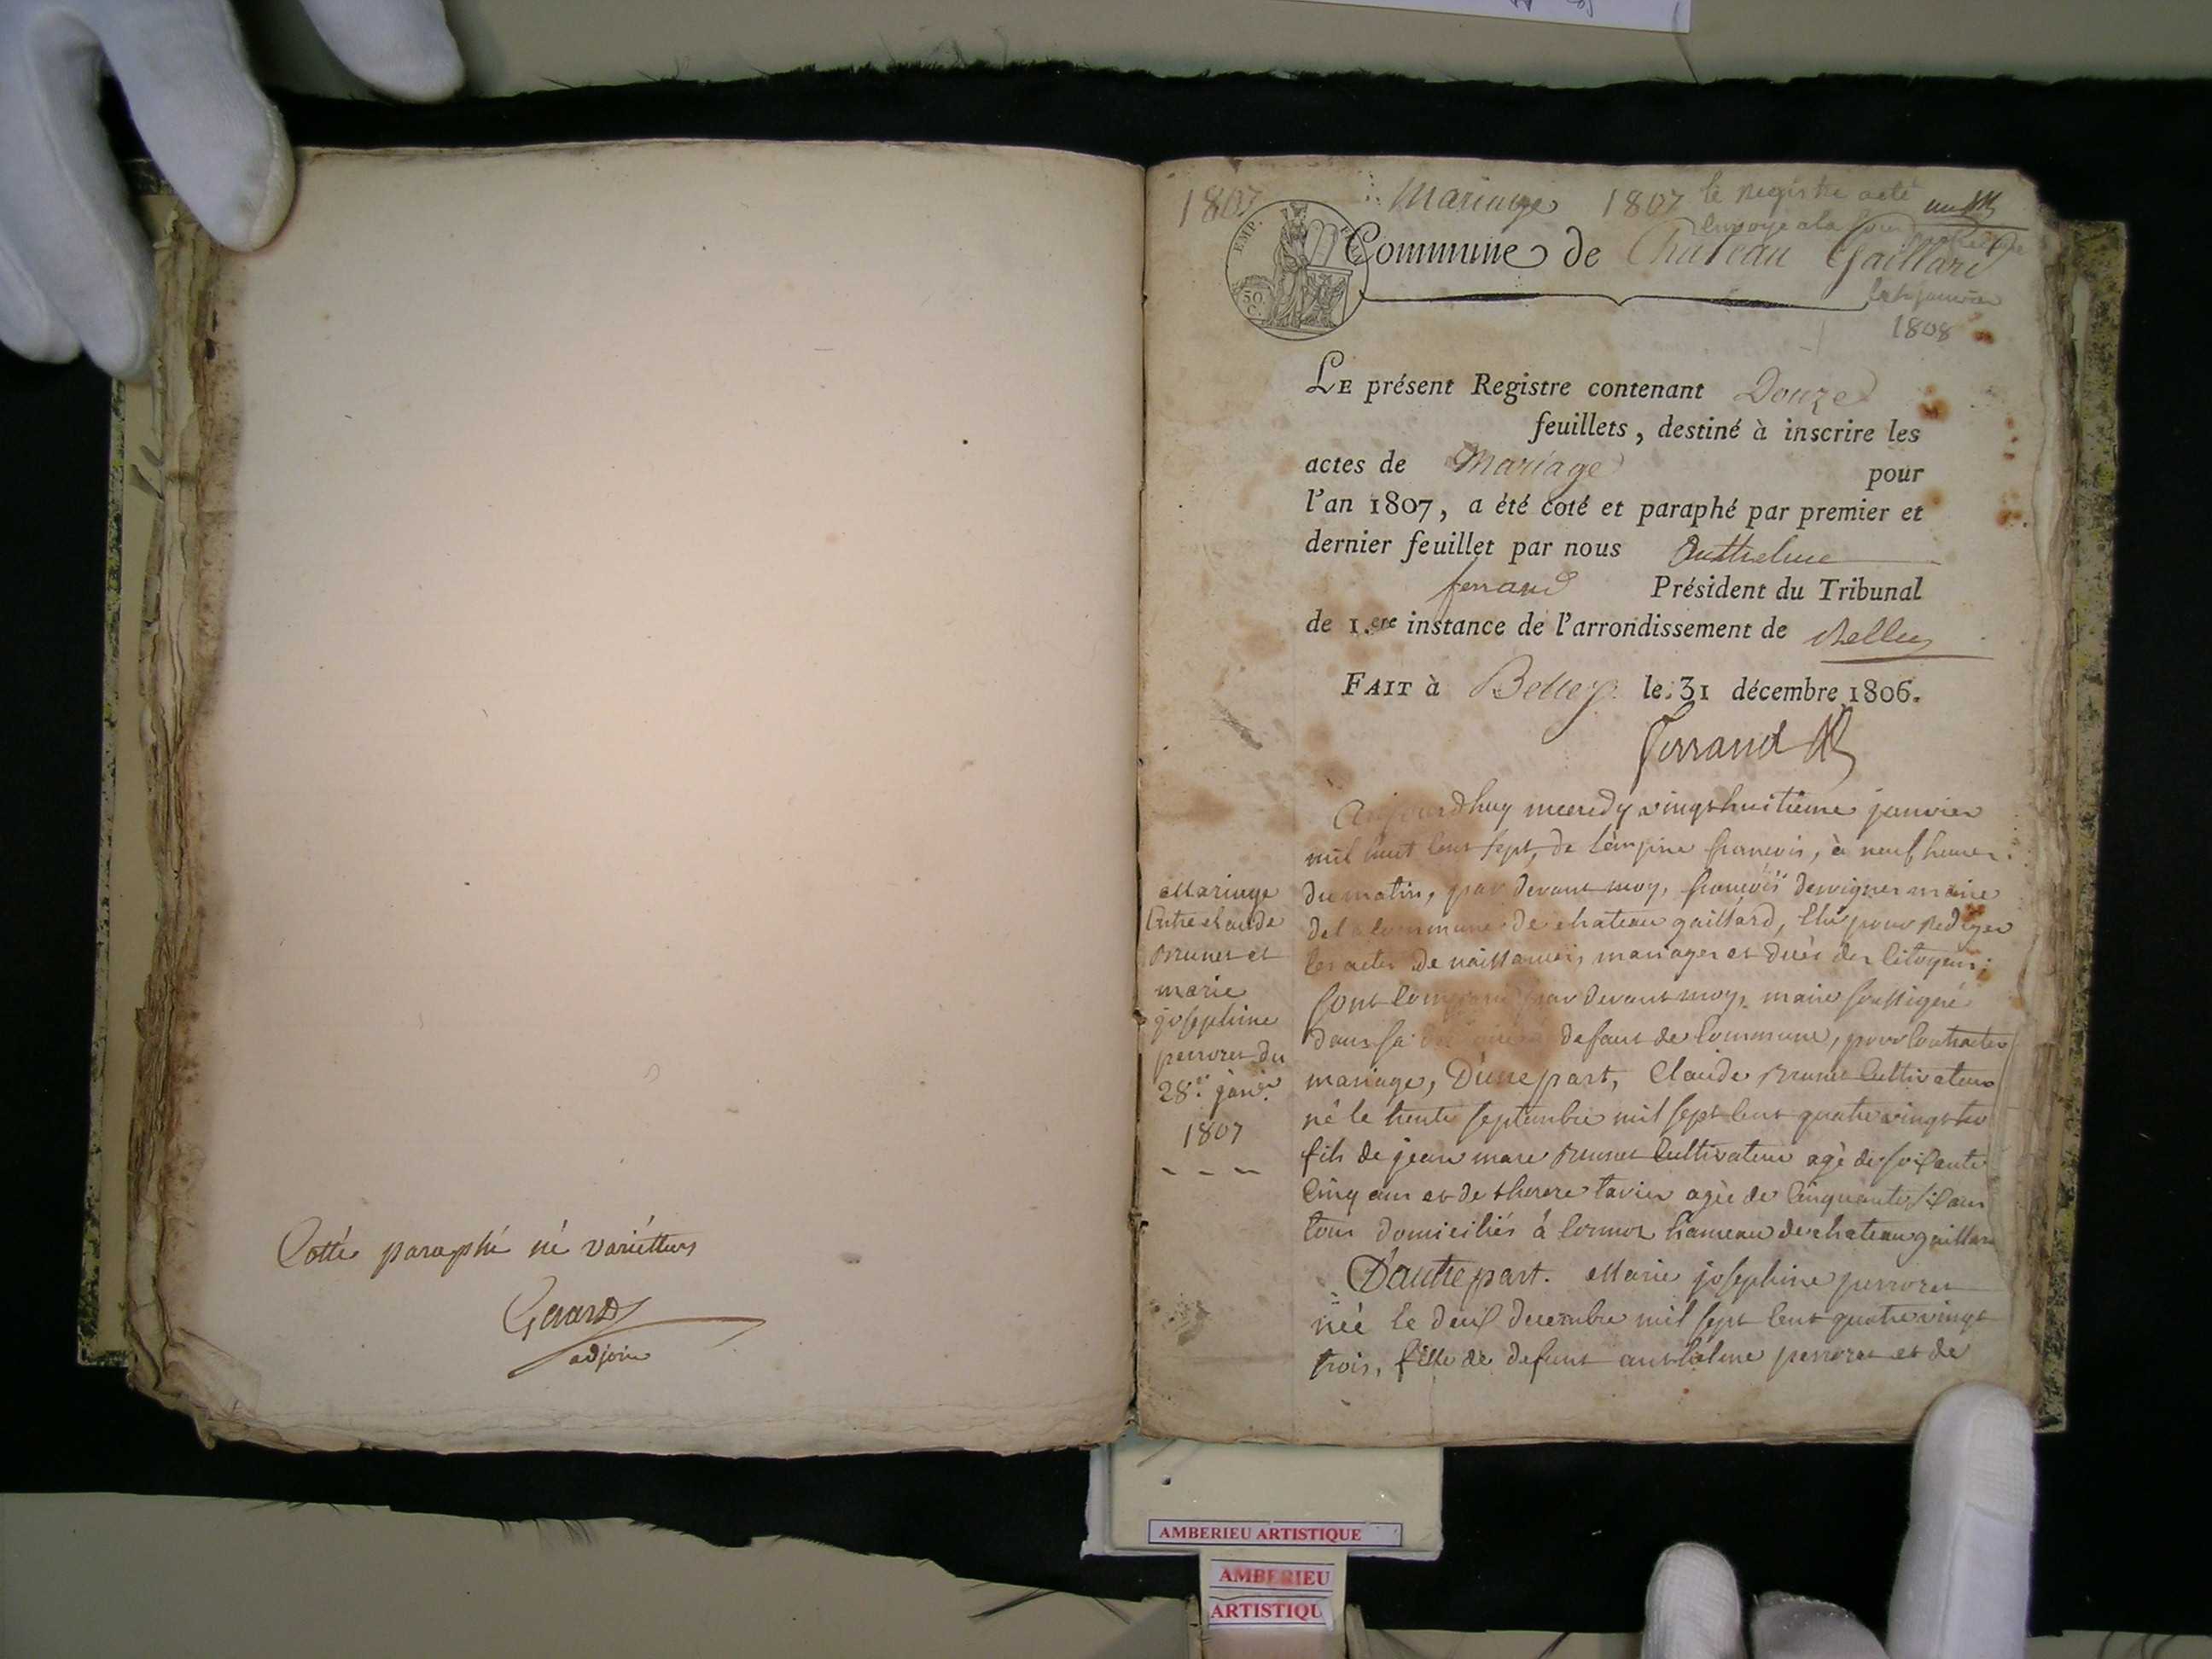 Cotté paraphé né variéttur
Gerard
adjoin
1807
Mariage 1807 le Registre acté
envoyé a la
Commune de Chateau Gaillard
janvier
1808
EMP.
50
C.
LE présent Registre contenant Douze
feuillets, destiné à inscrire les
actes de Mariage pour
l'an 1807, a été coté et paraphé par premier et
dernier feuillet par nous Anthelme
ferrand Président du Tribunal
de 1.ere instance de l'arrondissement de Belley
FAIT à Belley le 31 décembre 1806.
Ferrand
Aujourdhuy mecredy vingt huitieme janvier
mil huit cent sept, de l'empire francois, à neuf heures
du matin, par devant moy, francois dervignes maire
de la commune de chateau gaillard, Elu pour Rediger
les actes de naissances, mariages et décès des Citoyens;
sont comparu par devant moy, maire soussigné
dans sa defaut de commune, pour Contracter
mariage, D'une part, Claude Brunet Cultivateur
né le trente septembre mil sept cent quatre vingt
fils de jean marc Brunet Cultivateur agé de soixante
Cinq ans et de therese tavier agée de Cinquante six ans
tous domiciliés à Cormoz hameau de chateau gaillard
D'autre part. Marie josephine perroret
née le deux decembre mil sept cent quatre vingt
trois, fille de defunt anthelme perroret et de
Mariage
Entre claude
Brunet et
marie
josephine
perroret du
28.e janv.er
1807
AMBERIEU ARTISTIQUE
AMBERIEU
ARTISTIQU